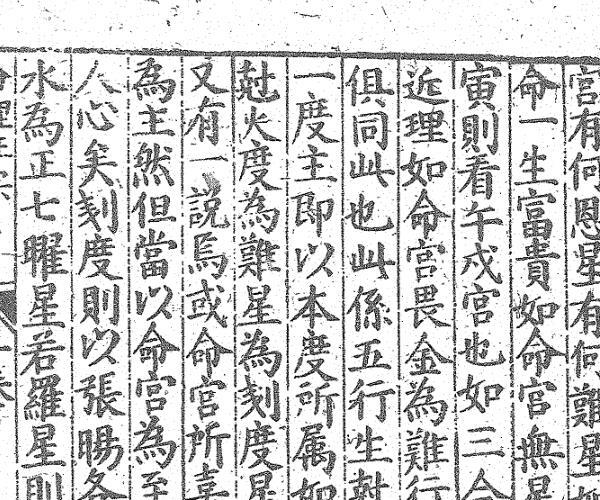 宫有何恩星有何難星
命一生富貴如命宫無
寅則看午戍宫也如三合
近理如命宫畏金為難行
俱同此也此係五行生尅
一度主即以本度所属如
尅火度為難星為刻度星
又有一說焉或命宫所喜
為主然但當以命宫為至
人心矣刻度則以張暘各
水為正七曜星若羅星則